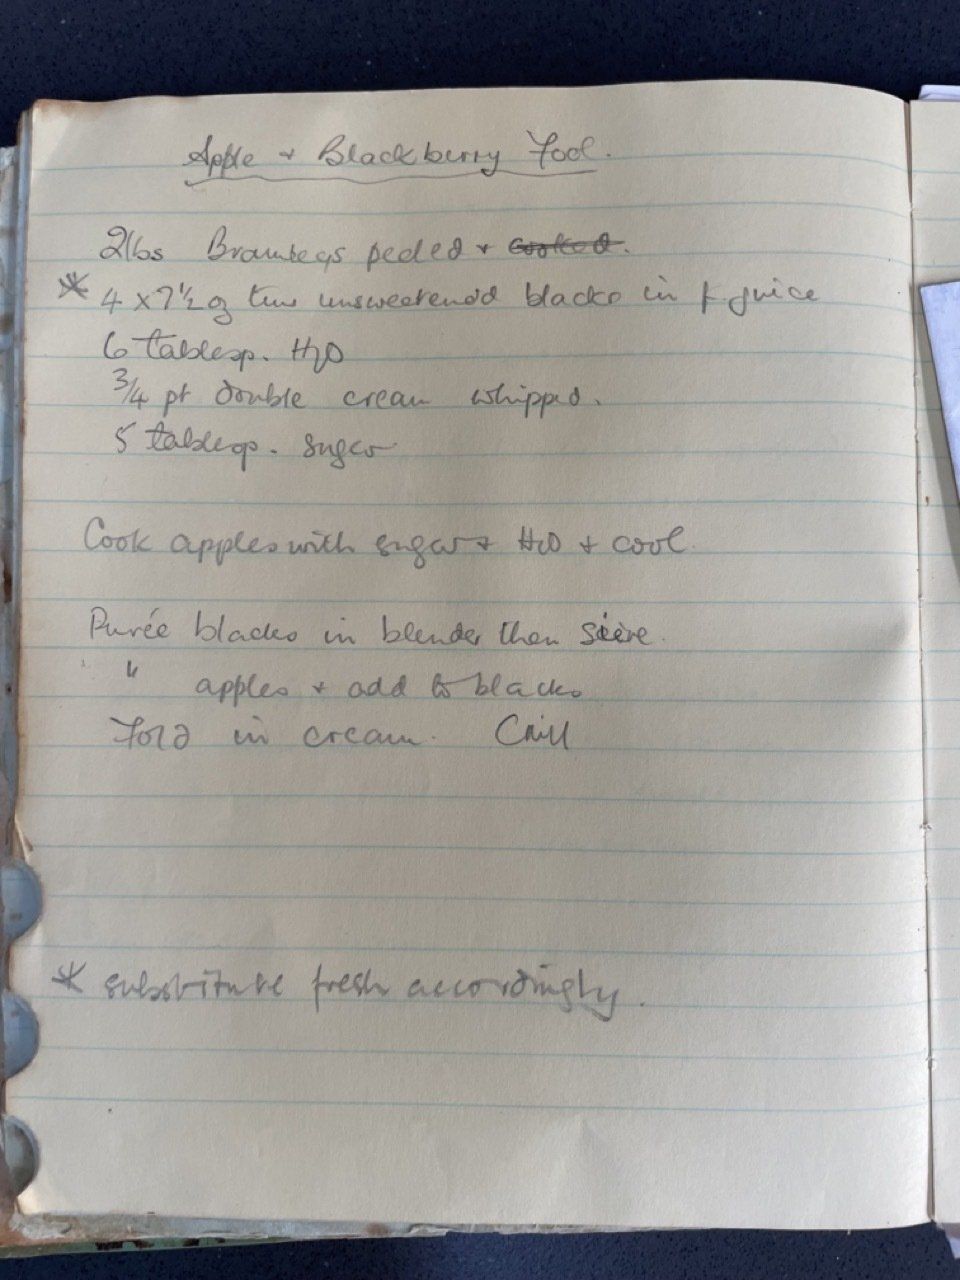 Apple + Blackberry Fool.
2lbs Bramleys peeled + cooked.
* 4 x 7½ oz tins unsweetened blacks in f. juice
6 tablesp. H2O
3/4 pt double cream whipped.
5 tablesp. sugar
Cook apples with sugar + H2O + cool.
Purée blacks in blender then sieve.
" apples + add to blacks
Fold in cream. Chill
* substitute fresh accordingly.